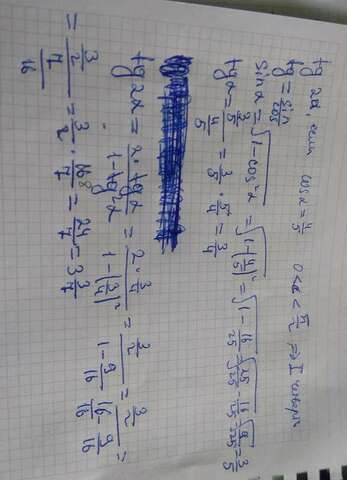 tg 2α, если cos α = 4/5 0 < α < π/2 => I четверть
tg = sin/cos
sin α = √(1 - cos²α) = √(1 - (4/5)²) = √(1 - 16/25) = √(25/25 - 16/25) = √(9/25) = 3/5
tg α = (3/5)/(4/5) = 3/5 · 5/4 = 3/4
tg 2α = (2 · tg α)/(1 - tg²α) = (2 · 3/4)/(1 - (3/4)²) = (3/2)/(1 - 9/16) = (3/2)/(16/16 - 9/16) =
= (3/2)/(7/16) = 3/2 · 16/7 = 24/7 = 3 3/7